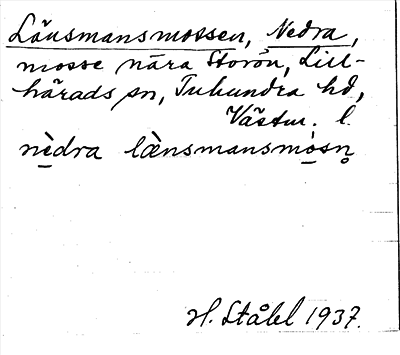 Länsmansmossen, Nedra,
mosse nära Storön, Lill-
härads sn, Tuhundra hd,
Västm. l.
nèdra lä̀nsmansmo̱sn̥
H. Ståhl 1937.